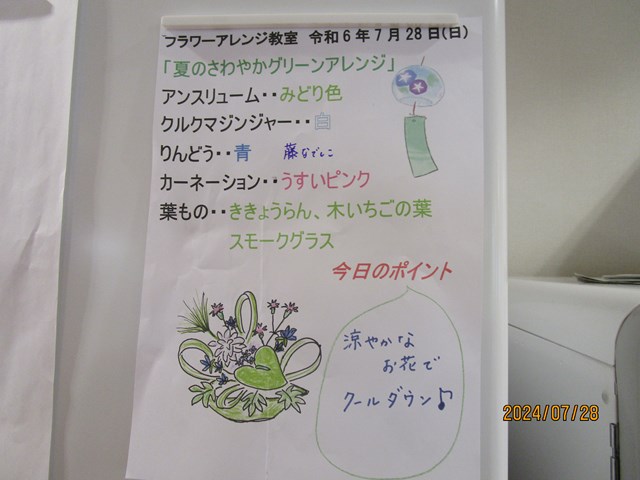 フラワーアレンジ教室 令和6年7月28日(日)
「夏のさわやかグリーンアレンジ」
アンスリューム・・みどり色
クルクマジンジャー・・白
りんどう・・青 藤なでしこ
カーネーション・・うすいピンク
葉もの・・ききょうらん、木いちごの葉
スモークグラス
今日のポイント
涼やかな
お花で
クールダウン♪
2024/07/28